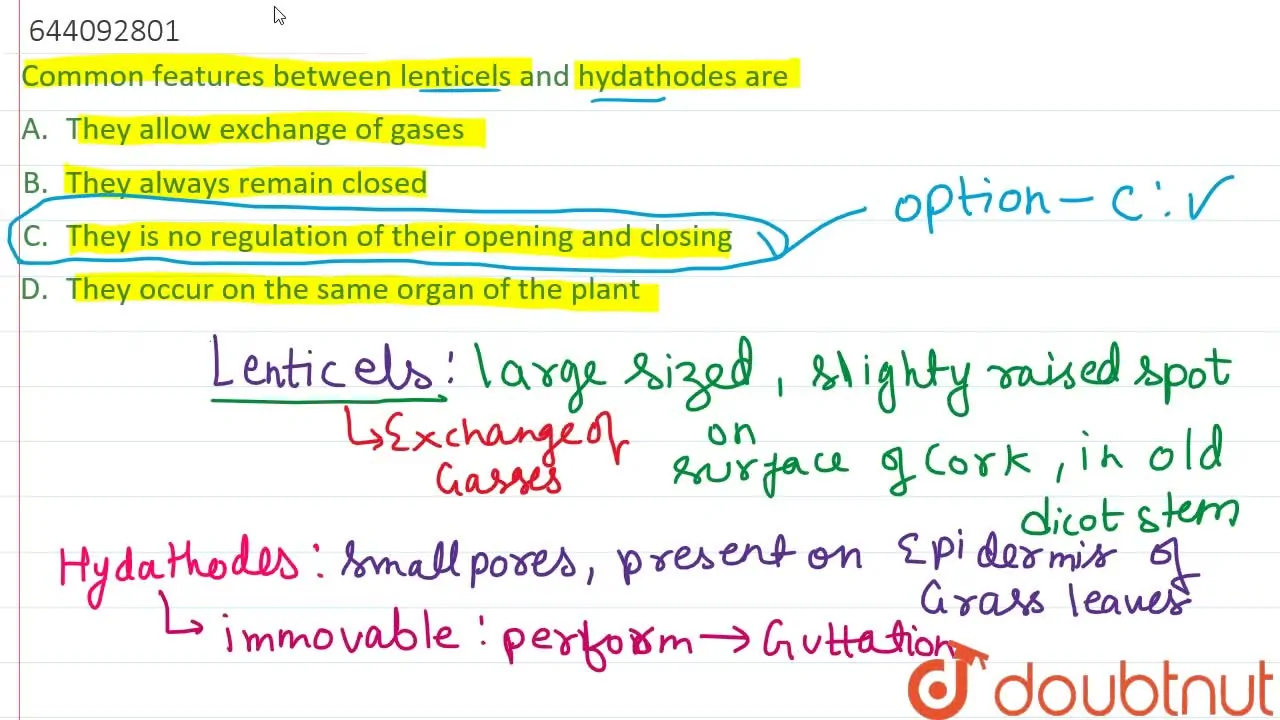 644092801
Common features between lenticels and hydathodes are
A. They allow exchange of gases
B. They always remain closed
C. They is no regulation of their opening and closing
option - C : ✓
D. They occur on the same organ of the plant
Lenticels : large sized, slighty raised spot
↳ Exchange of Gasses
on surface of Cork, in old
dicot stem
Hydathodes : small pores, present on Epidermis of
Grass leaves
↳ immovable : perform → Guttation
doubtnut